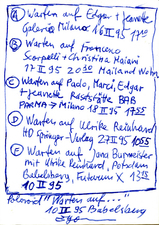 A Warten auf Edgar + Jeanette
Galerie Milano 16 II 95 17
B Warten auf Francesco
Scarpelli + Christina Maiani
17 II 95 20 30 Mailand
C Warten auf Paolo, Marci, Edgar
+ Jeanette Raststätte BAB
PARMA → Milano 18 II 95 17 55
D Warten auf Ulrike Reinhard
HD Springer-Verlag 27 II 95 10 55
F Warten auf Jana Burmeister
mit Ulrike Reinhard, Potsdam
Babelsberg, Futurum X 13
10 II 95
"Warten auf..."
10 II 95 Babelsberg